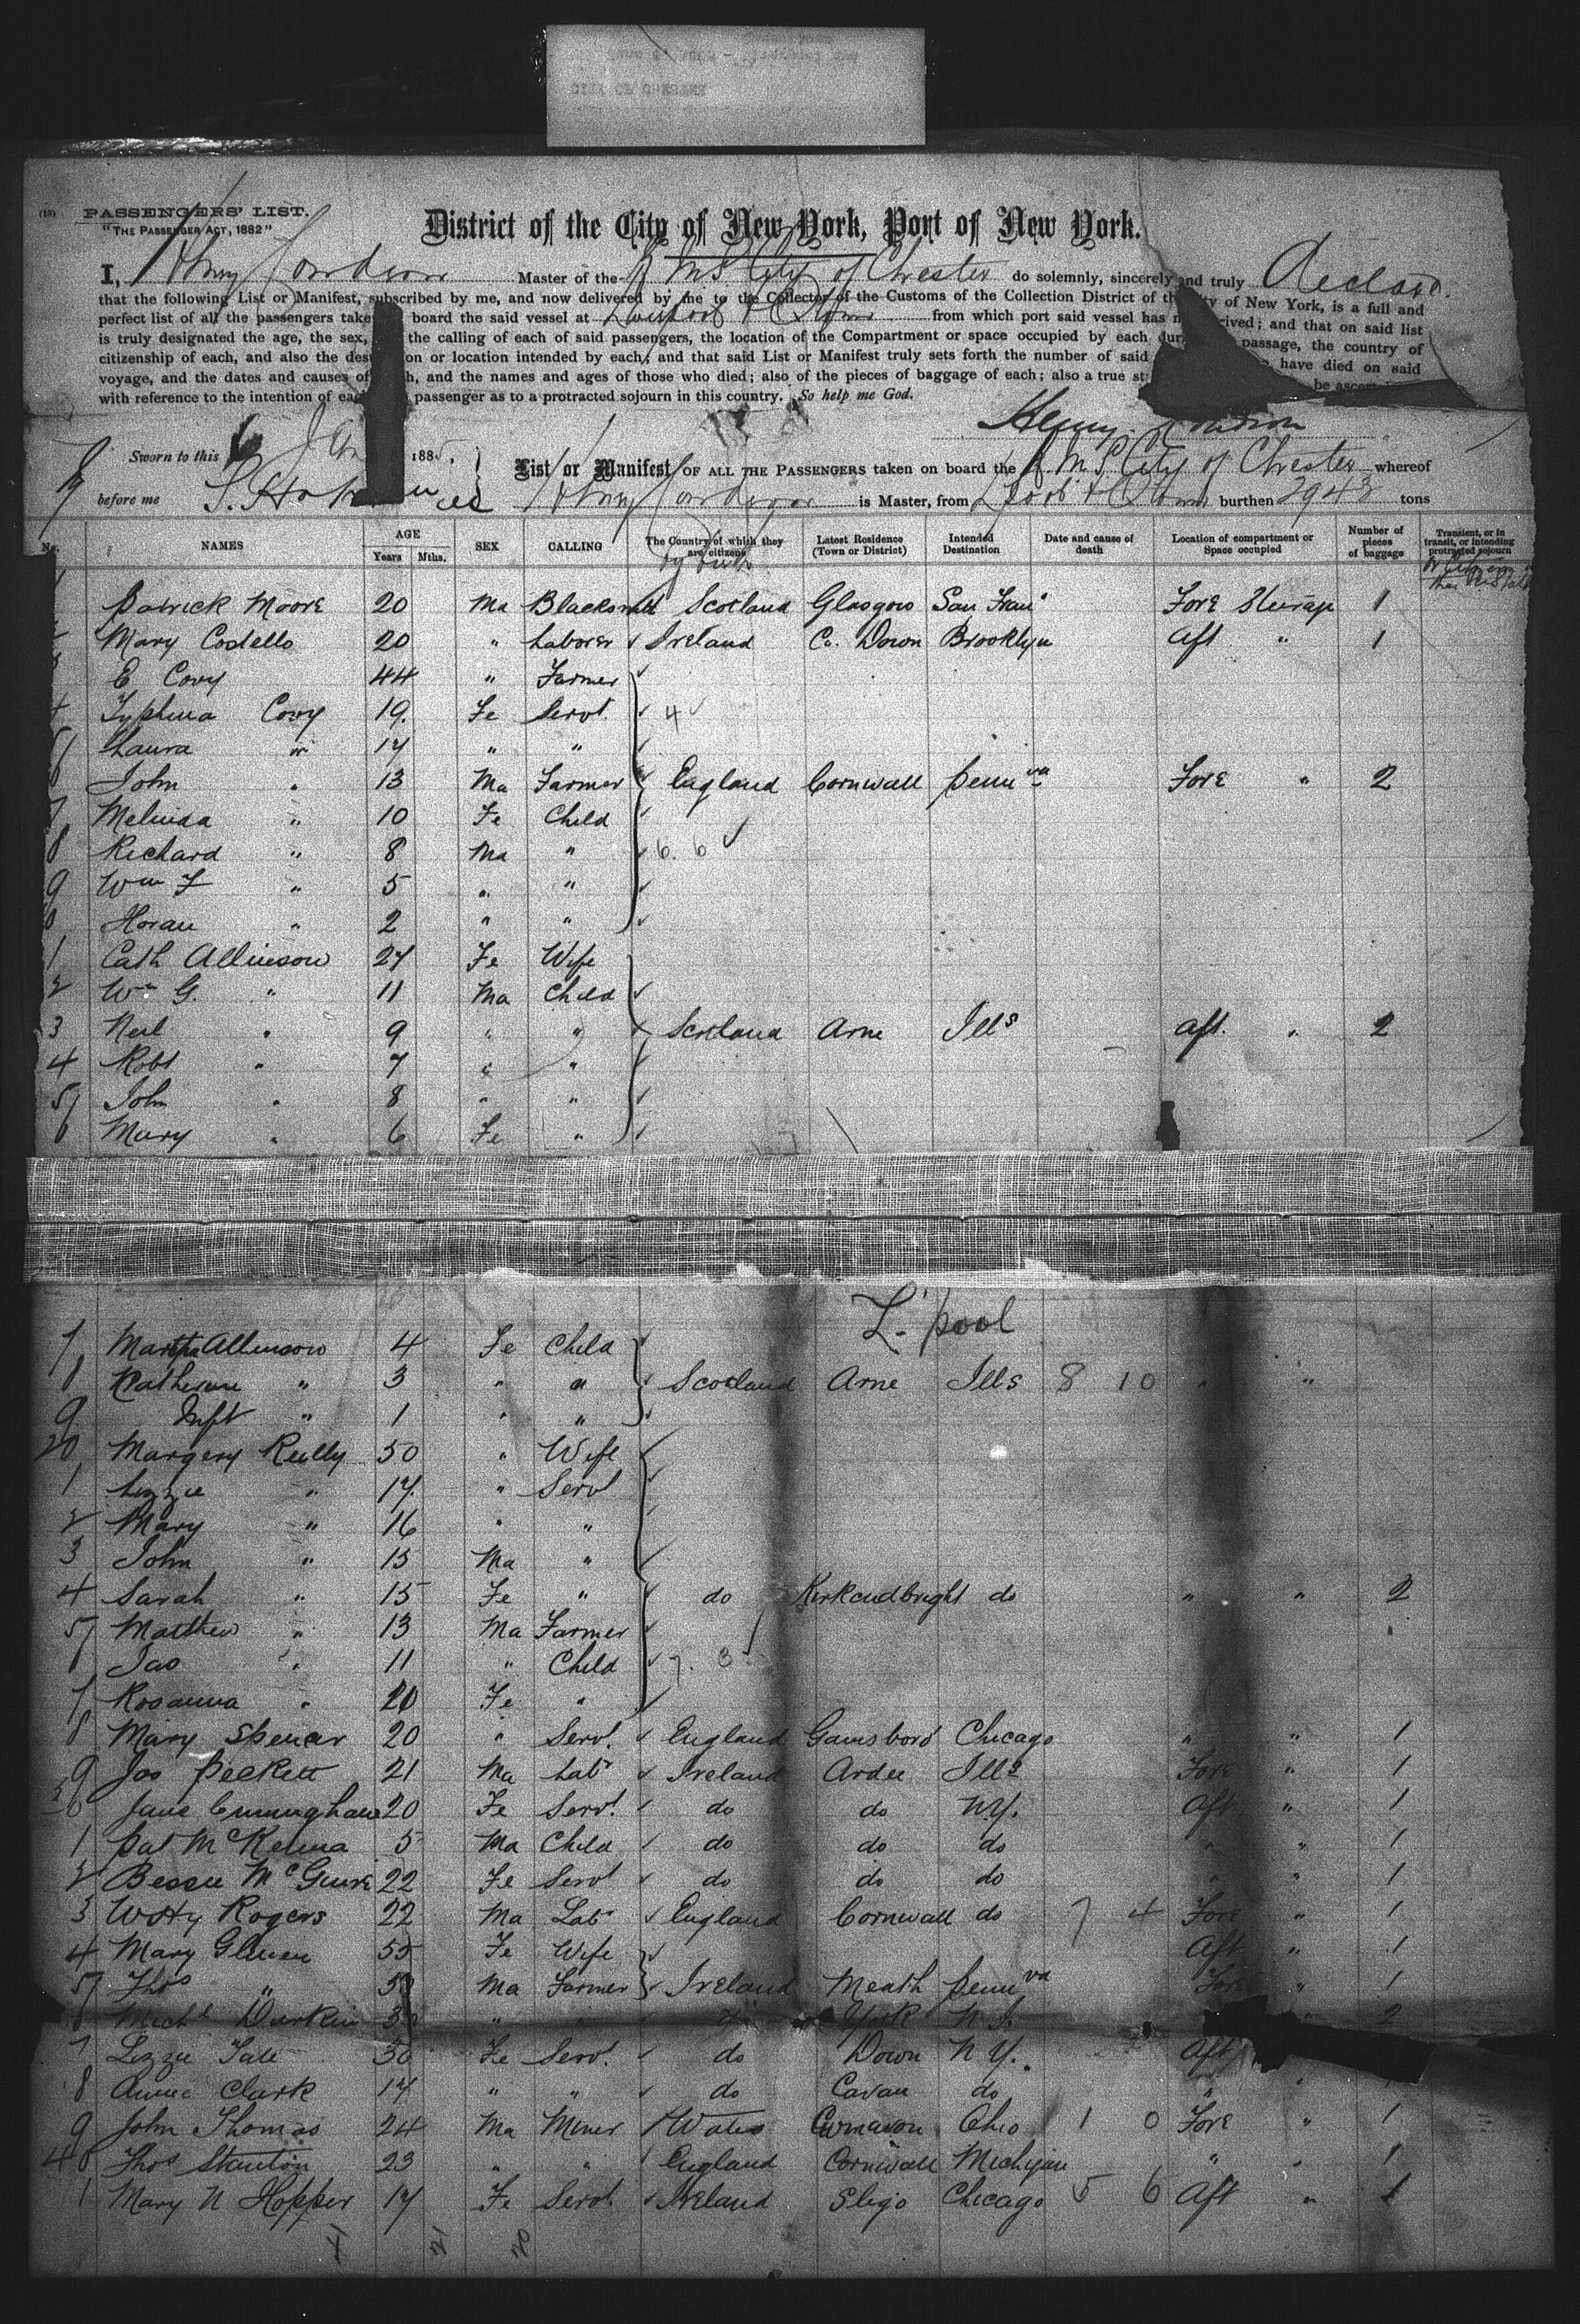 CITY OF CHESTER
(18) PASSENGERS' LIST.
"THE PASSENGER ACT, 1882"
District of the City of New York, Port of New York.
I, Henry Condron Master of the R M S City of Chester do solemnly, sincerely and truly Declare
that the following List or Manifest, subscribed by me, and now delivered by me to the Collector of the Customs of the Collection District of the City of New York, is a full and
perfect list of all the passengers take board the said vessel at Liverpool & QTown from which port said vessel has n rived; and that on said list
is truly designated the age, the sex, the calling of each of said passengers, the location of the Compartment or space occupied by each dur passage, the country of
citizenship of each, and also the des on or location intended by each; and that said List or Manifest truly sets forth the number of said have died on said
voyage, and the dates and causes of h, and the names and ages of those who died; also of the pieces of baggage of each; also a true st be ascer
with reference to the intention of eac passenger as to a protracted sojourn in this country. So help me God.
Henry Condron
Sworn to this 6 Jan 1885,
before me
List or Manifest OF ALL THE PASSENGERS taken on board the R. M. S. City of Chester whereof
Henry Condron is Master, from Lpool & QTown burthen 2943 tons
No. NAMES AGE Years Mths. SEX CALLING The Country of which they are citizens Latest Residence (Town or District) Intended Destination Date and cause of death Location of compartment or Space occupied Number of pieces of baggage Transient, or in transit, or intending protracted sojourn
by birth
1 Patrick Moore 20 Ma Blacksmith Scotland Glasgow San Fran Fore Steerage 1
2 Mary Costello 20 " Laborer ✓ Ireland Co. Down Brooklyn Aft " 1
3 E Covy 44 " Farmer ✓
4 Typhena Covy 19. Fe Servt. ✓ 4 ✓
5 Laura " 17 " " ✓
6 John " 13 Ma Farmer ✓ England Cornwall Penn va Fore " 2
7 Melinda " 10 Fe Child ✓
8 Richard " 8 Ma " ✓ 6. 6 ✓
9 Wm F " 5 " " ✓
0 Horau " 2 " " ✓
1 Cath Allinson 27 Fe Wife
2 Wm G. " 11 Ma Child ✓
3 Neil " 9 " " ✓ Scotland Arne Ills Aft. " 2
4 Robt " 7 " " ✓
5 John " 8 " " ✓
6 Mary " 6 Fe " ✓
L'pool
7 Martha Allinson 4 Fe Child ✓
8 Catherine " 3 " " ✓ Scotland Arne Ills 8 10 " "
9 Inft " 1 " " ✓
20 Margery Reilly 50 " Wife ✓
1 Lizzie " 17. " Servt ✓
2 Mary " 16 " " ✓
3 John " 15 Ma " ✓
4 Sarah " 15 Fe " ✓ do Kirkcudbright do " " 2
5 Matthew " 13 Ma Farmer ✓
6 Jas " 11 " Child ✓ 7. 3
7 Rosanna " 20 Fe " ✓
8 Mary Spencer 20 " Servt. ✓ England Gainsboro' Chicago " " 1
9 Jas Peckett 21 Ma Labr ✓ Ireland Ardee Ills Fore " 1
30 Jane Cunningham 20 Fe Servt. ✓ do do NY. Aft " 1
1 Pat McKenna 5 Ma Child ✓ do do do " " 1
2 Bessie McGuire 22 Fe Servt ✓ do do do " " 1
3 Wm Hy Rogers 22 Ma Labr ✓ England Cornwall do 7 4 Fore " 1
4 Mary Glenen 55 Fe Wife ✓ Aft " 1
5 Thos " 5 Ma Farmer ✓ Ireland Meath Penn va Fore " 1
6 Michl Durkin 3 " " do York N. J. " 2
7 Lizzie Tate 30 Fe Servt. ✓ do Down N Y. Aft
8 Annie Clark 17 " " ✓ do Cavan do " " 1
9 John Thomas 24 Ma Miner ✓ Wales Carnavon Ohio 1 0 Fore " 1
40 Thos Stanton 23 " " ✓ England Cornwall Michigan " " 1
1 Mary N Hopper 17 Fe Servt. ✓ Ireland Sligo Chicago 5 6 Aft " 1